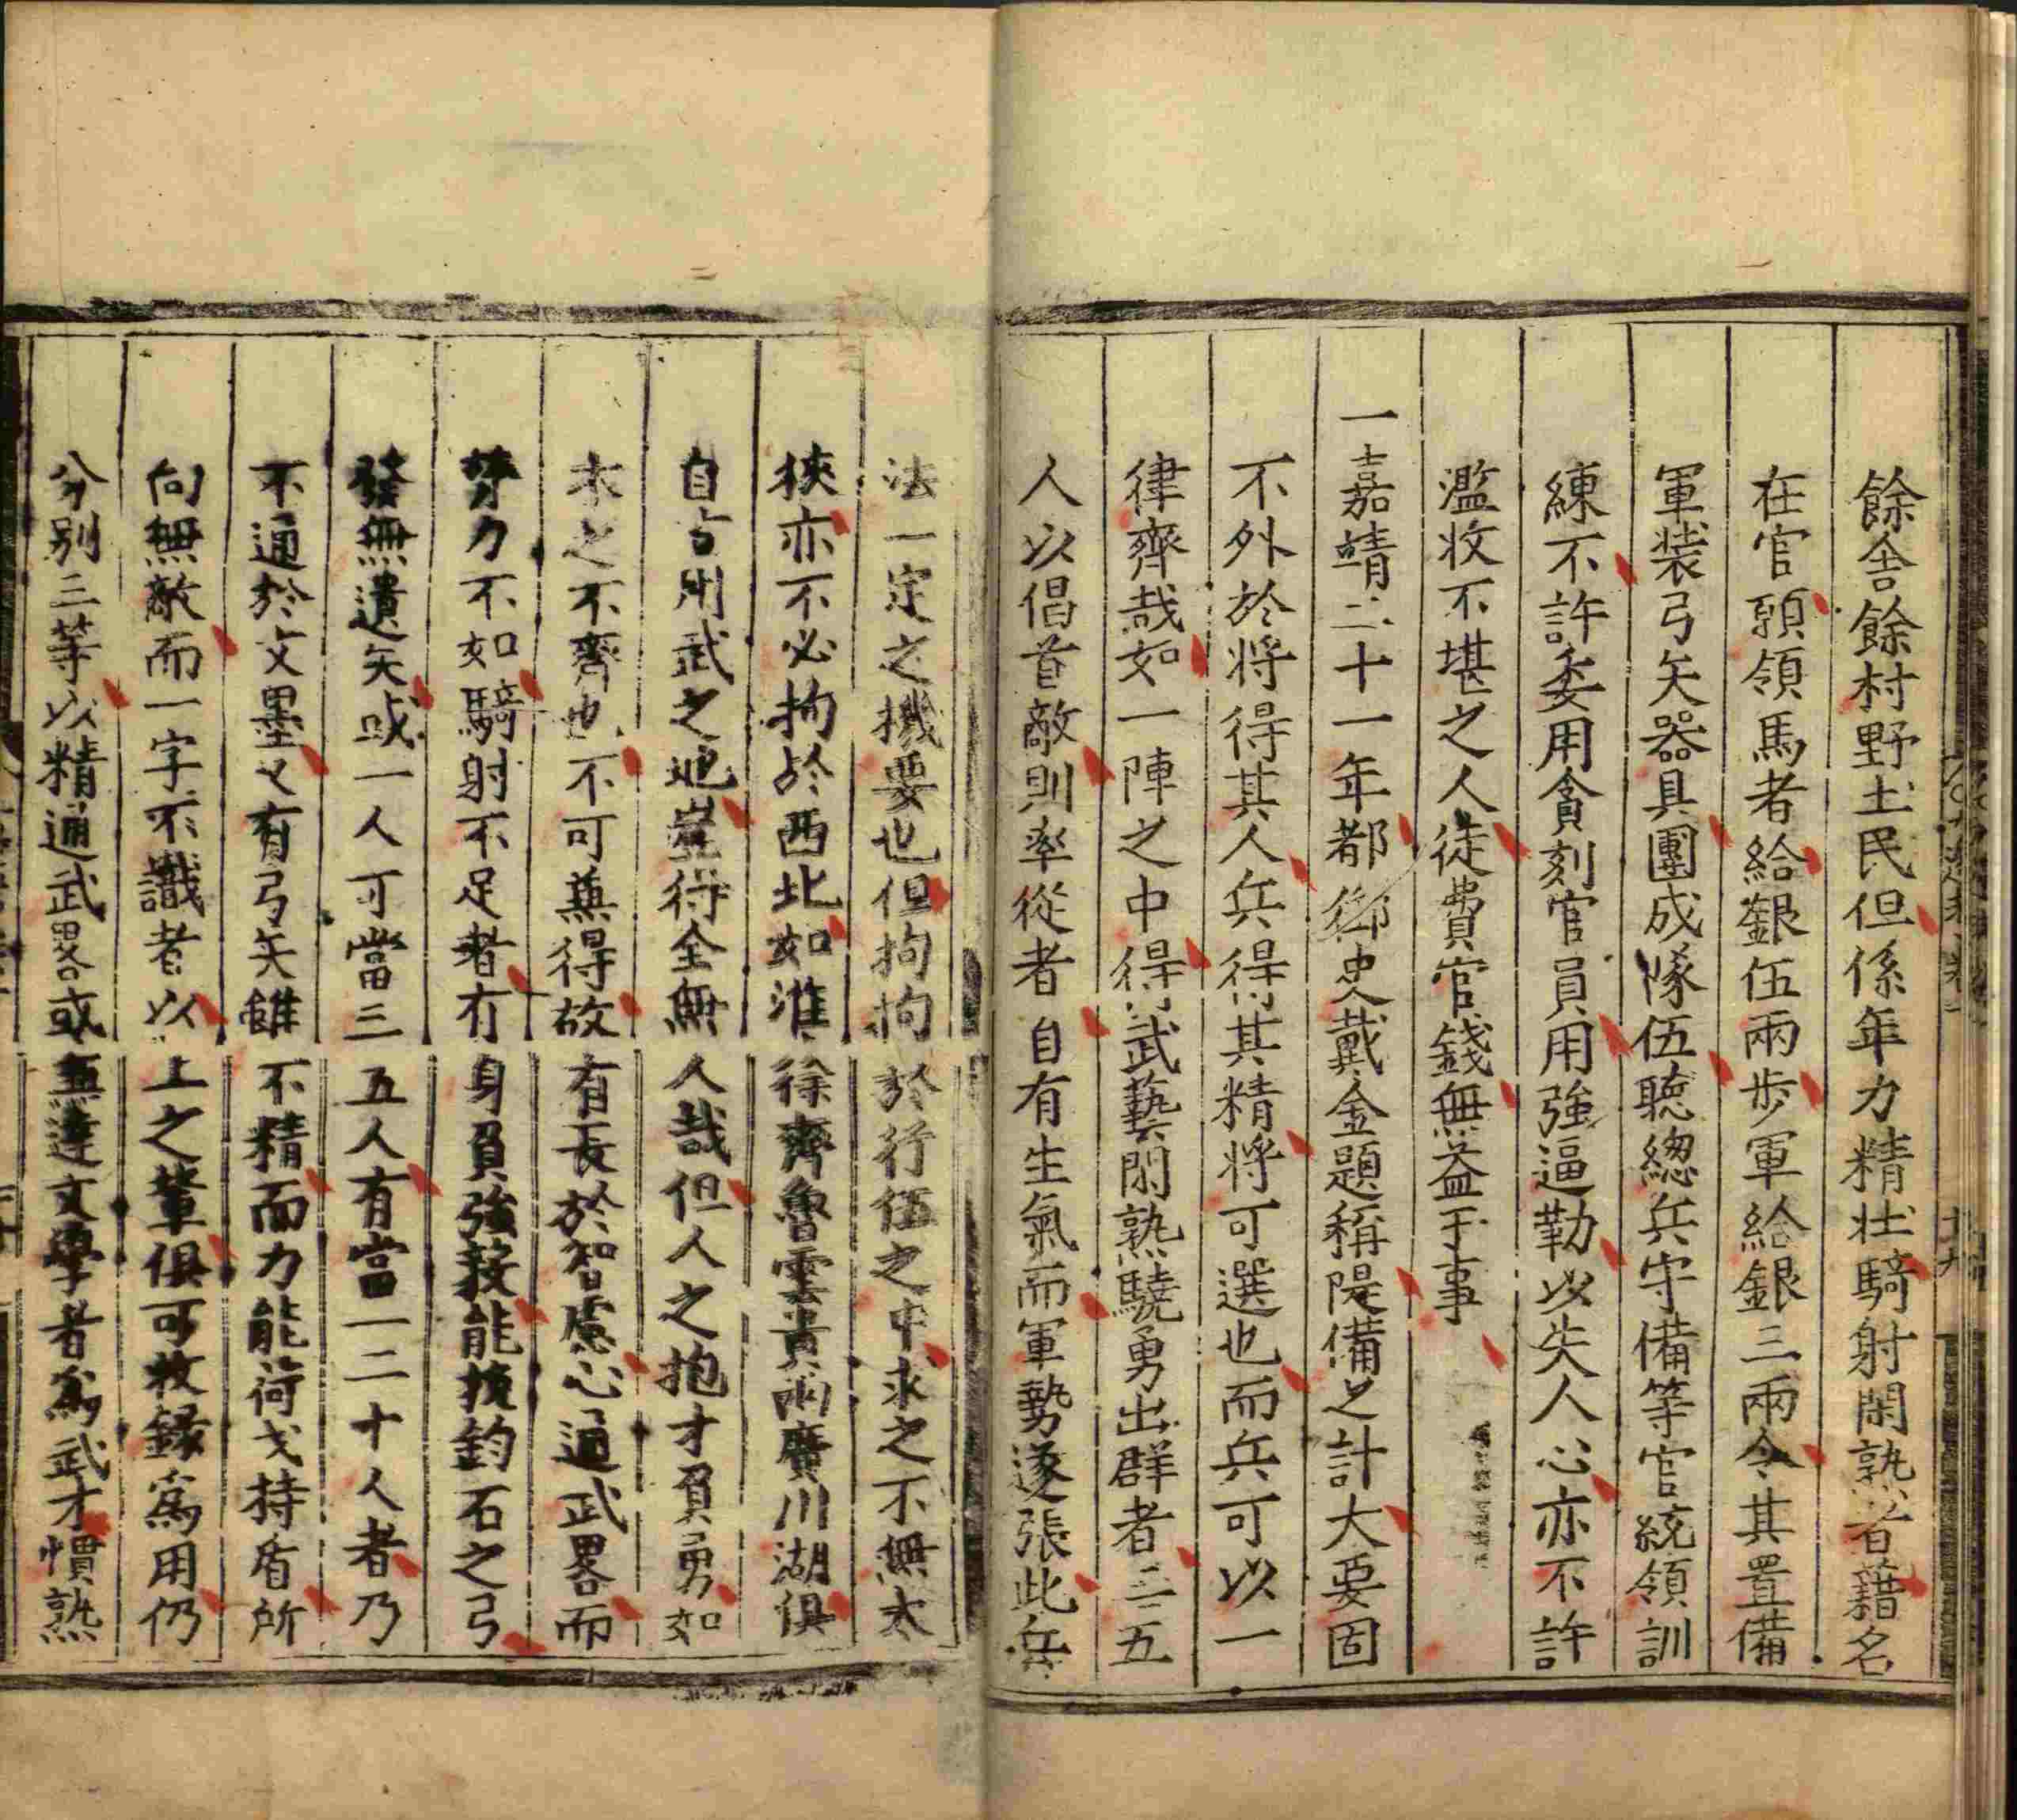 餘舍餘村野土民但係年力精壯騎射閑熟者籍名
在官願領馬者給銀伍兩步軍給銀三兩令其置備
軍裝弓矢器具團成隊伍聽總兵守備等官統領訓
練不許委用貪刻官員用強逼勒以失人心亦不許
濫收不堪之人徒費官錢無益于事
一嘉靖二十一年都御史戴金題稱隄備之計大要固
不外於將得其人兵得其精將可選也而兵可以一
律齊哉如一陣之中得武藝閑熟驍勇出群者三五
人以倡首敵則率從者自有生氣而軍勢遂張此兵
法一定之機要也但拘拘於行伍之中求之不無太
狹亦不必拘於西北如淮徐齊魯雲貴兩廣川湖俱
自古用武之地豈得全無人哉但人之抱才負勇如
木之不齊也不可兼得故有長於智慮心通武畧而
膂力不如騎射不足者有身負強鞍能挽鈞石之弓
發無遺矢或一人可當三五人有當一二十人者乃
不通於文墨又有弓矢雖不精而力能荷戈持盾所
向無敵而一字不識者以上之輩俱可收錄爲用仍
分別三等以精通武畧或無達文學者爲武才慣熟